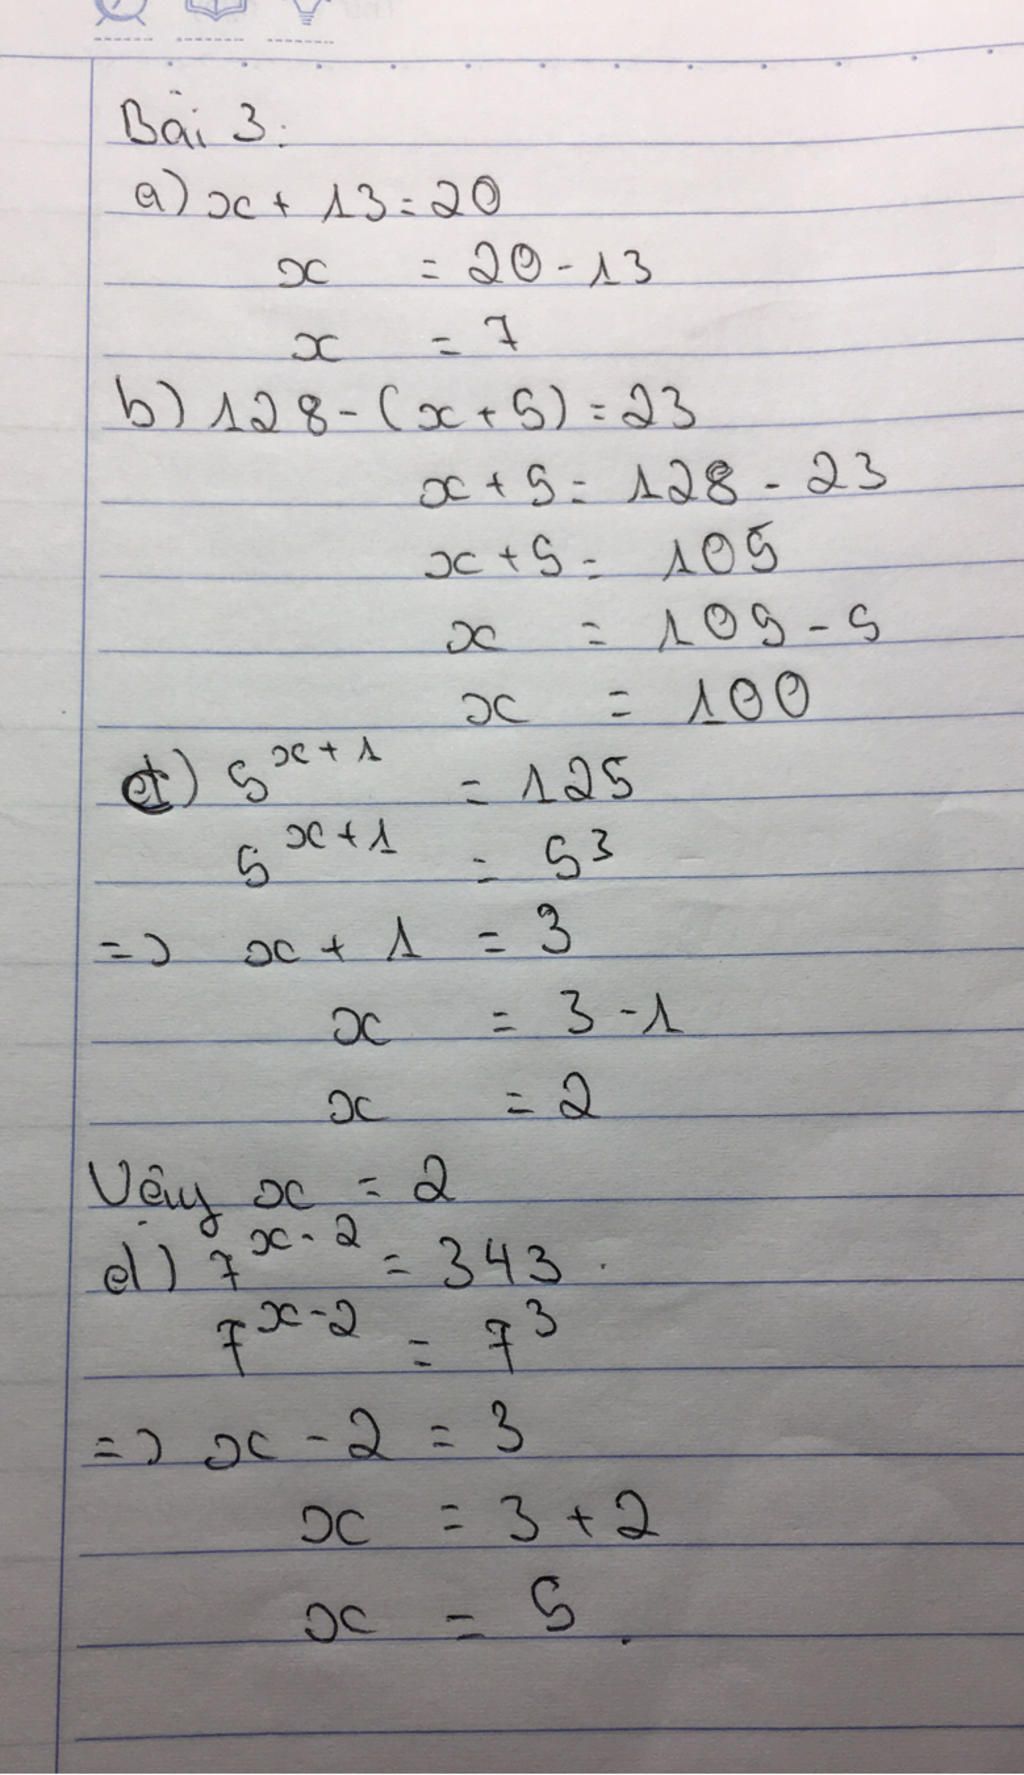 Bài 3:
a) x + 13 = 20
x = 20 - 13
x = 7
b) 128 - (x + 5) = 23
x + 5 = 128 - 23
x + 5 = 105
x = 105 - 5
x = 100
c) 5^{x+1} = 125
5^{x+1} = 5^3
=> x + 1 = 3
x = 3 - 1
x = 2
Vậy x = 2
d) 7^{x-2} = 343
7^{x-2} = 7^3
=> x - 2 = 3
x = 3 + 2
x = 5.